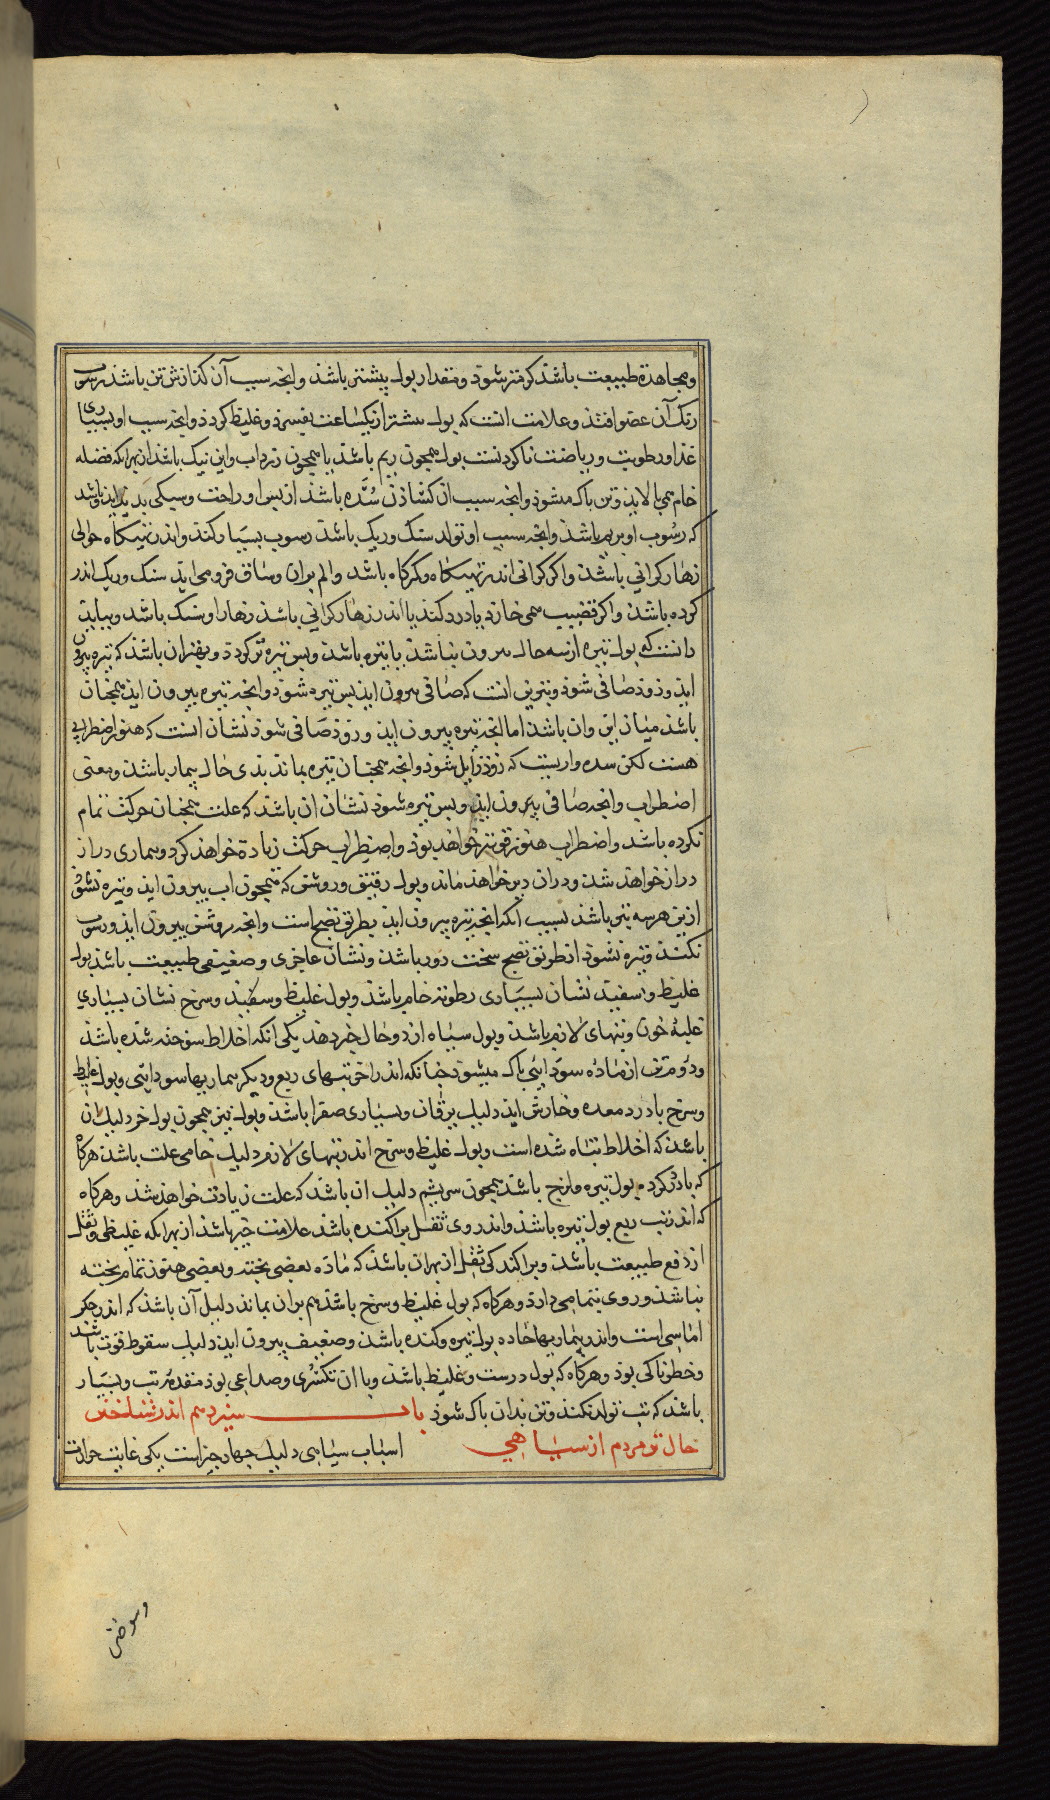 و مجاهدة طبیعت باشذ کمتر شوذ و مقدار بول بیشتر باشذ و انچه سبب آن کذازش تن باشذ رسوب
رنک آن عضو افتذ و علامت انست که بول بیشتر از یکساعت بفسرذ و غلیظ کرذذ و انچه سبب او بسیاری
غذا و رطوبت و ریاضت ناکردنست بول همچون ریم باشذ یا همچون زرداب و این نیک باشذ از بهر انکه فضله
خام همی بالایذ و تن باک میشوذ و انچه سبب ان کشاذن سُدّه باشذ از بس او راحت و سبکی بدید ایذ و باشد
که رسوب او بریم باشذ و انچه سبب او تولد سنک و ریک باشذ رسوب بسیار کند و اندر تهیکاه حوالی
زهار کرانی باشذ و اکر کرانی اندر تهیکاه و کمرکاه باشد و الم بران و ساق فرو می اید سنک و ریک اندر
کرده باشذ و اکر قضیب همی خارذ یا درد کند یا اندر زهار کرانی باشذ زهار او سنک باشد و ببایذ
دانست که بول تیره از سه حال بیرون نباشذ یا تیره باشذ و بس تیره تر کردد و بهتر ان باشذ که تیره بیرون
ایذ و زوذ صافی شوذ و بترین انست که صافی بیرون ایذ بس تیره شوذ و انچه تیره بیرون ایذ همچنان
باشذ میان این و ان باشذ اما انچه تیره بیرون ایذ و زوذ صافی شوذ نشان انست که هنوز اضطرابی
هست لکن سده و اربست که زوذ زایل شوذ و انچه همچنان تیره بماند بذی حال بیمار باشذ و معنی
اضطراب و انچه صافی بیرون ایذ و بس تیره شوذ نشان ان باشذ که علت همچنان حرکت تمام
نکرده باشد و اضطراب هنوز قوی تر خواهد بوذ و اضطراب حرکت زیادة خواهذ کرد و بیماری دراز
دراز خواهذ شذ و دران دیر خواهذ ماند و بول رقیق و روشن که همچون اب بیرون ایذ و تیره نشوذ
ازین هر سه بتر باشذ بسبب انکه انچه تیره بیرون ایذ بطریق نضج است و انچه روشن بیرون ایذ و رسوب
نکنذ و تیره نشوذ از طریق نضج سخت دور باشذ و نشان عاجزی و ضعیفی طبیعت باشذ بول
غلیظ و سفیذ نشان بسیاری رطوبة خام باشذ و بول غلیظ و سفیذ و سرخ نشان بسیاری
غلبهٔ خون و تبهای لازم باشذ و بول سیاه از دو حال خبر دهد یکی انکه اخلاط سوخته شده باشذ
و دوم تن از ماده سودایی باک میشوذ جنانکه اندر اخر تبهای ربع و دیکر بیماریها سودایی و بول غلیظ
و سرخ با درد معده و خارش ایذ دلیل یرقان و بسیاری صفرا باشذ و بول تیز همچون بول خر دلیل ان
باشذ که اخلاط تباه شده است و بول غلیظ و سرخ اندر تبهای لازم دلیل خامی علت باشذ هرکاه
که با درد بول تیره و لزج باشذ همچون سریشم دلیل ان باشذ که علت زیادت خواهذ شذ و هرکاه
که اندر تب ربع بول تیره باشذ و اندر وی ثقل براکنده باشذ علامت خیر باشذ از بهر انکه غلیظی و ثقل
از دفع طبیعت باشذ و براکندکی ثقل از بهران باشذ که ماده بعضی بخته و بعضی هنوز تمام بخته
نباشذ و روی بتمامی دارد و هرکاه که بول غلیظ و سرخ باشذ هم بران بماند دلیل آن باشذ که اندر جکر
اماسی است و اندر بیماریها حاده بول تیره و کنده باشذ و ضعیف بیرون ایذ دلیل سقوط قوت باشد
و خطرناکی بوذ و هرکاه که بول درست و غلیظ باشذ و با ان تکسری و صداعی بوذ مقدمه تب و بسیار
باشذ که تب تولد نکند و تن بذان باک شوذ باب سیزدهم اندر شناختن
حال تن مردم از سیاهی اسباب سیاهی دلیل جهار جیز است یکی غایت حرارت
وسوختن